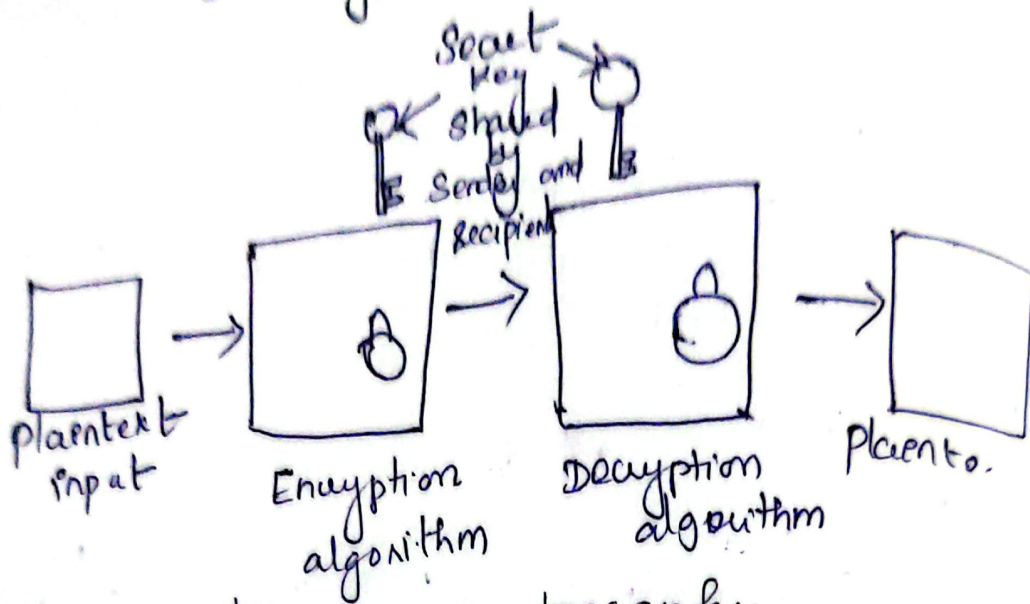 Secret
Key
shared
by
Sender and
recipient
Plaentext
input
Encryption
algorithm
Decryption
algorithm
Plaento.